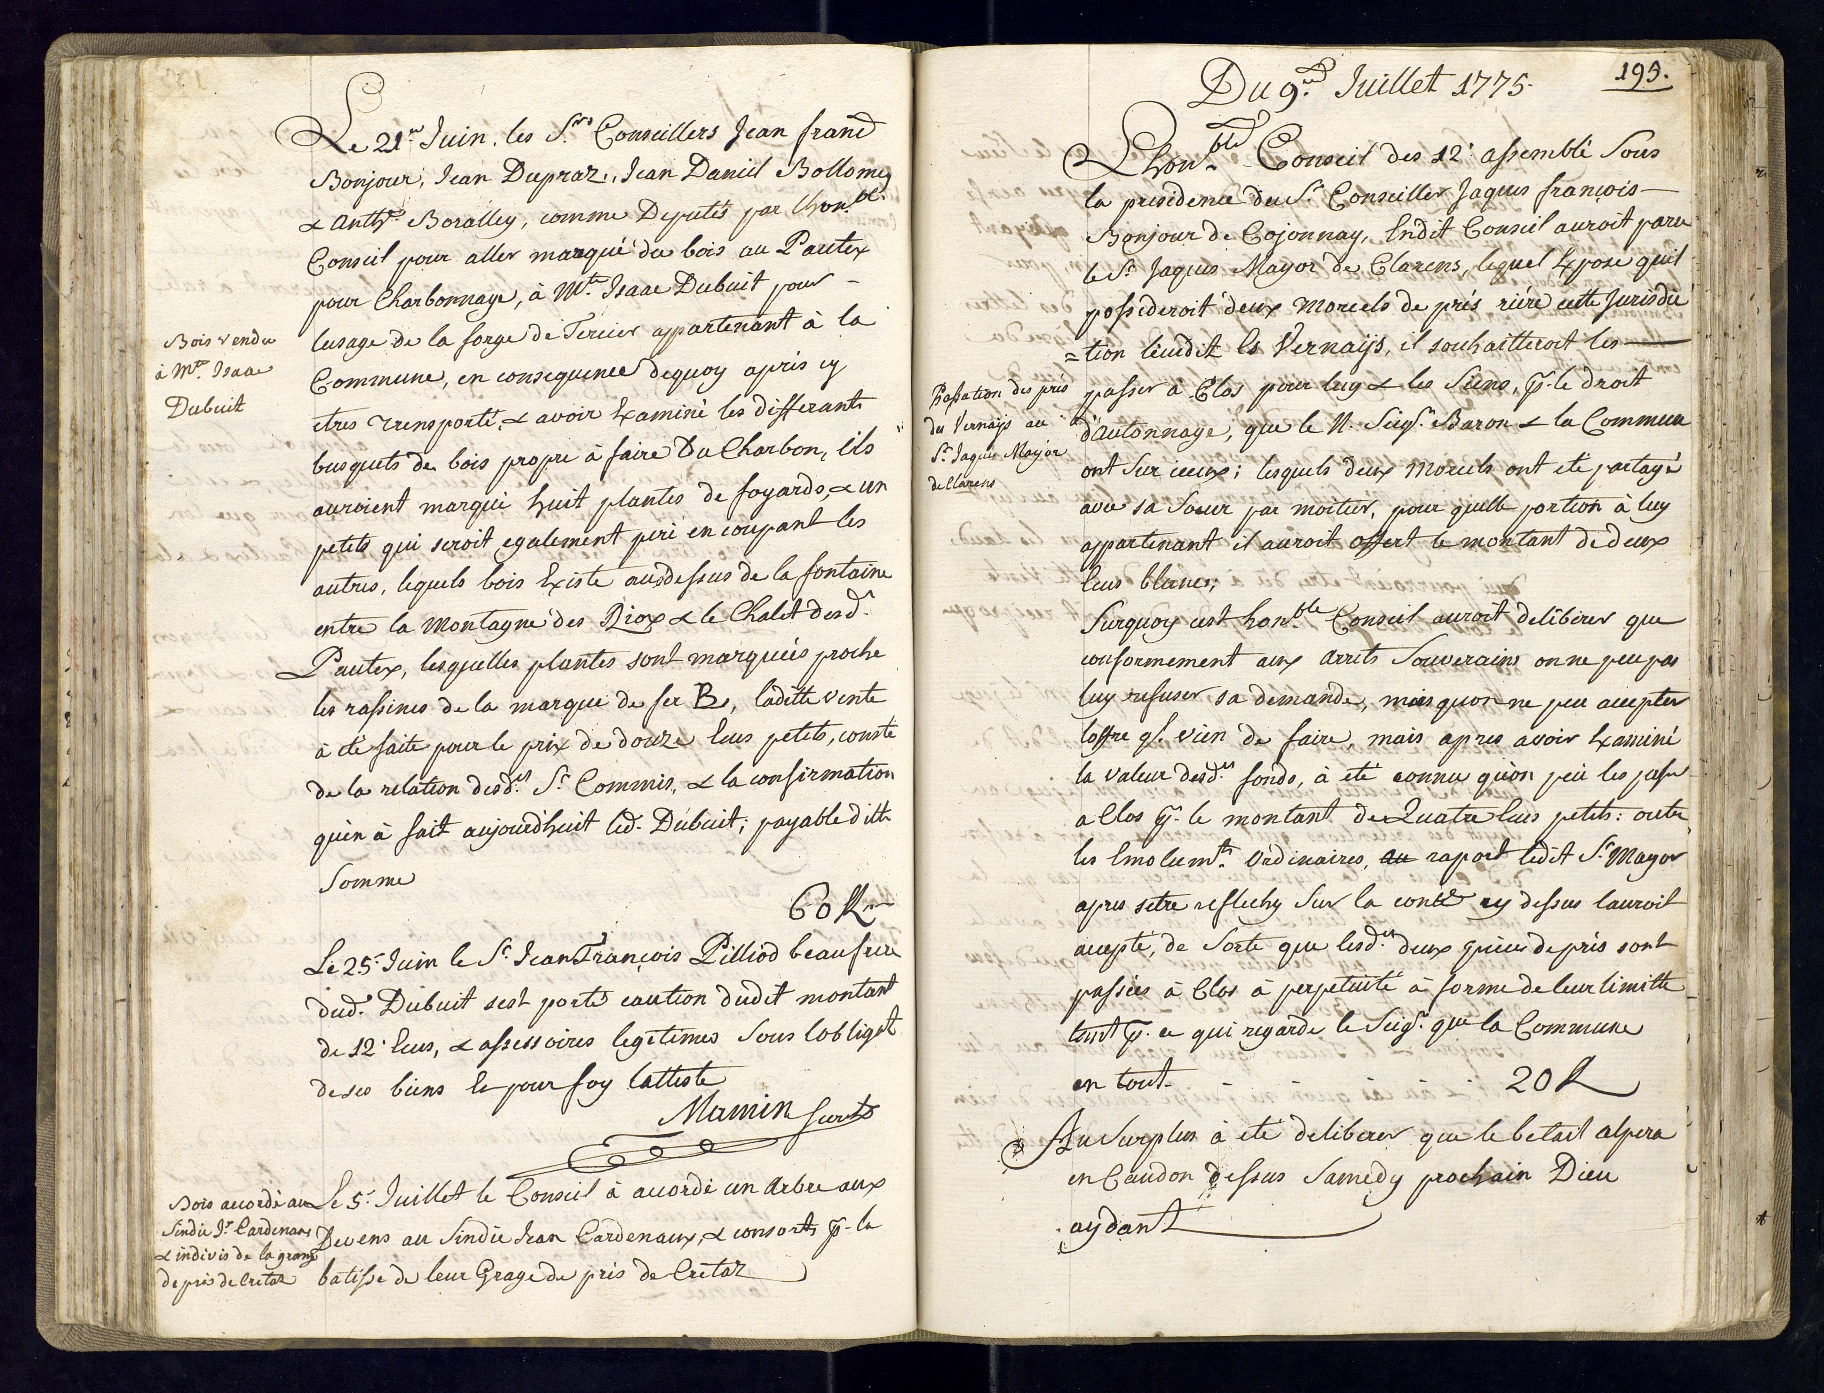 Le 21e Juin. les Srs Conseillers Jean franc
Bonjour, Jean Dupraz, Jean Daniel Bollomey
& Anthe Boralley, comme Deputés par lhonble
Conseil pour aller marqué du bois au Pautex
pour Charbonnage, à Mtre Isaac Dubuit pour -
lusage de la forge de Tercier appartenant à la
Commune, en consequence dequoy apris cy
etres transporté, & avoir Examiné les differants
busquets de bois propre à faire Du Charbon, lils
auroient marqué huit plantes de foyards, & un
petits qui seroit egalement peri en coupant les
autres, lequels bois Existe audessus de la fontaine
entre la montagne des Riox & le Chalet desdt
Pautex, lesquelles plantes sont marquéés proche
les rassines de la marque de fer B, laditte vente
à été faite pour le prix de douze Ecus petits, conste
de la relation desdts Sr Commis, & la confirmation
quen à fait aujourdhuit led. Dubuit; payable ditte
Somme
60 R
Le 25e Juin le Sr Jean François Pilliod beaufrere
dudt Dubuit sest porté caution dudit montant
de 12 Ecus, & assessoires legitimes Sous lobligat
de ses biens Et pour foy latteste
Mamin
Le 5e Juillet le Conseil à accordé un Arbre aux
Devens au Sindic Jean Cardenaux, & consorts p. la
batisse de leur Grage de prés de Cretaz
Bois vendu
à Mtre Isaac
Dubuit
Bois accordé au
Sindic Jn Cardenaux
& indivis de la grange
de prés de Cretaz
193.
Du 9e Juillet 1775.
Lhonble Conseil des 12 assemblé Sous
la presidence du Sr Conseiller Jaques françois -
Bonjour de Cojonnay, Endit Conseil auroit paru
le Sr Jaques Mayor de Clarens, lequel Expose quil
possederoit deux Morcels de prés riére cette Jurisdic
=tion lieudit Es Vernaÿs, il souhaitteroit les
passer à Clos pour luy & les Siens, p. le droit
d'autonnage, que le N. Seigr Baron & la Commune
ont Sur iceux; lesquels deux morcels ont ete partagé
avec sa Soeur par moitier, pour quelle portion à luy
appartenant il auroit offert le montant de deux
Ecus blancs;
Surquoy cest honble Conseil auroit deliberer que
conformement aux Arrets Souverains on ne peu pas
luy refuser sa demande, mais quon ne peu accepter
loffre ql. vien de faire, mais apres avoir Examiné
la valeur desdts fonds, à eté connu qu'on peu les passer
a Clos p. le montant de Quatre Ecus petits: outre
les Emolumts Ordinaires, au raport ledit Sr Mayor
apres setre reflechy Sur la cy dessus lauroit
accepté, de Sorte que lesdts deux piéces de prés sont
passées à Clos à perpetuité à forme de leur limitte
tant p. ce qui regarde le Seigr que la Commune
en tout - - - - 20 R
Au Surplus à eté deliberer que le betail alpera
en Caudon dessus Samedy prochain Dieu
aydant
Passation des prés
du Vernaÿs au
Sr Jaques Mayor
de Clarens